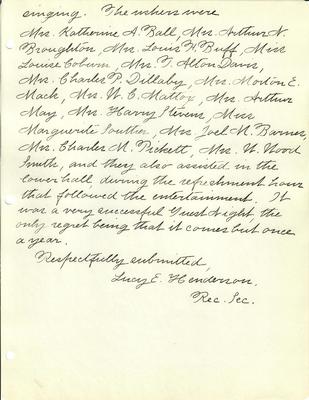 singing. The ushers were
Mrs. Katherine A. Ball, Mrs. Arthur N.
Broughton, Mrs. Louis F. Buff, Miss
Louise Coburn, Mrs. T. Alton Davis,
Mrs. Charles P. Dillaby, Mrs. Morton E.
Mack, Mrs. W. C. Mattox, Mrs. Arthur
May, Mrs. Harry Stevens, Miss
Marguerite Souther, Mrs. Joel M. Barnes,
Mrs. Charles M. Pickett, Mrs. W. Wood
Smith, and they also assisted in the
lower hall, during the refreshment hour
that followed the entertainment. It
was a very successful Guest Night, the
only regret being that it comes but once
a year.
Respectfully submitted,
Lucy E. Henderson.
Rec. Sec.